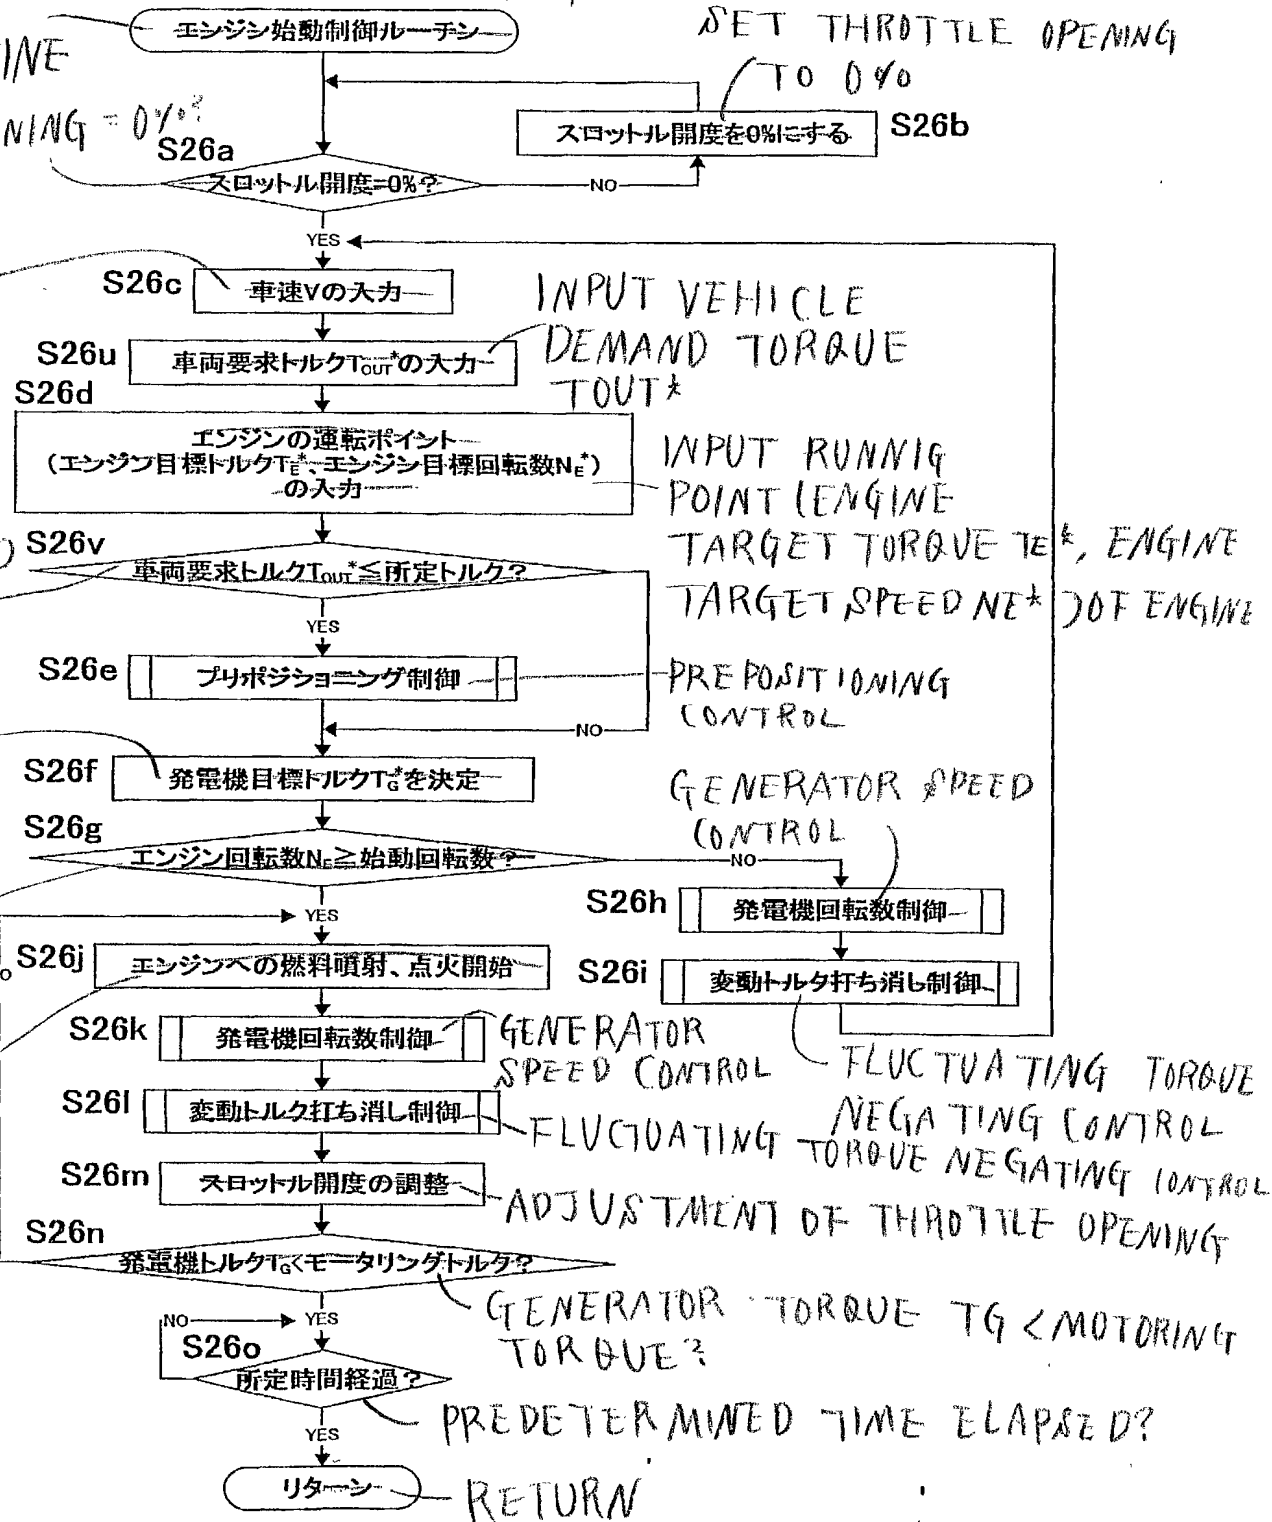 エンジン始動制御ルーチン
SET THROTTLE OPENING
TO 0%
INE
NING = 0%?
S26a
スロットル開度を0%にする
S26b
スロットル開度=0%?
NO
YES
S26c
車速Vの入力
INPUT VEHICLE
DEMAND TORQUE
TOUT*
S26u
車両要求トルクTOUT*の入力
S26d
エンジンの運転ポイント
(エンジン目標トルクTE*、エンジン目標回転数NE*)
の入力
INPUT RUNNIG
POINT (ENGINE
TARGET TORQUE TE*, ENGINE
TARGET SPEED NE*) OF ENGINE
S26v
車両要求トルクTOUT*≦所定トルク?
YES
S26e
プリポジショニング制御
PREPOSITIONING
CONTROL
NO
S26f
発電機目標トルクTG*を決定
GENERATOR SPEED
CONTROL
S26g
エンジン回転数NE≧始動回転数?
NO
S26h
発電機回転数制御
YES
S26j
エンジンへの燃料噴射、点火開始
S26i
変動トルク打ち消し制御
S26k
発電機回転数制御
GENERATOR
SPEED CONTROL
FLUCTUATING TORQUE
NEGATING CONTROL
S26l
変動トルク打ち消し制御
FLUCTUATING TORQUE NEGATING CONTROL
S26m
スロットル開度の調整
ADJUSTMENT OF THROTTLE OPENING
S26n
発電機トルクTG<モータリングトルク?
GENERATOR TORQUE TG < MOTORING
TORQUE?
NO
YES
S26o
所定時間経過?
PREDETERMINED TIME ELAPSED?
YES
リターン
RETURN